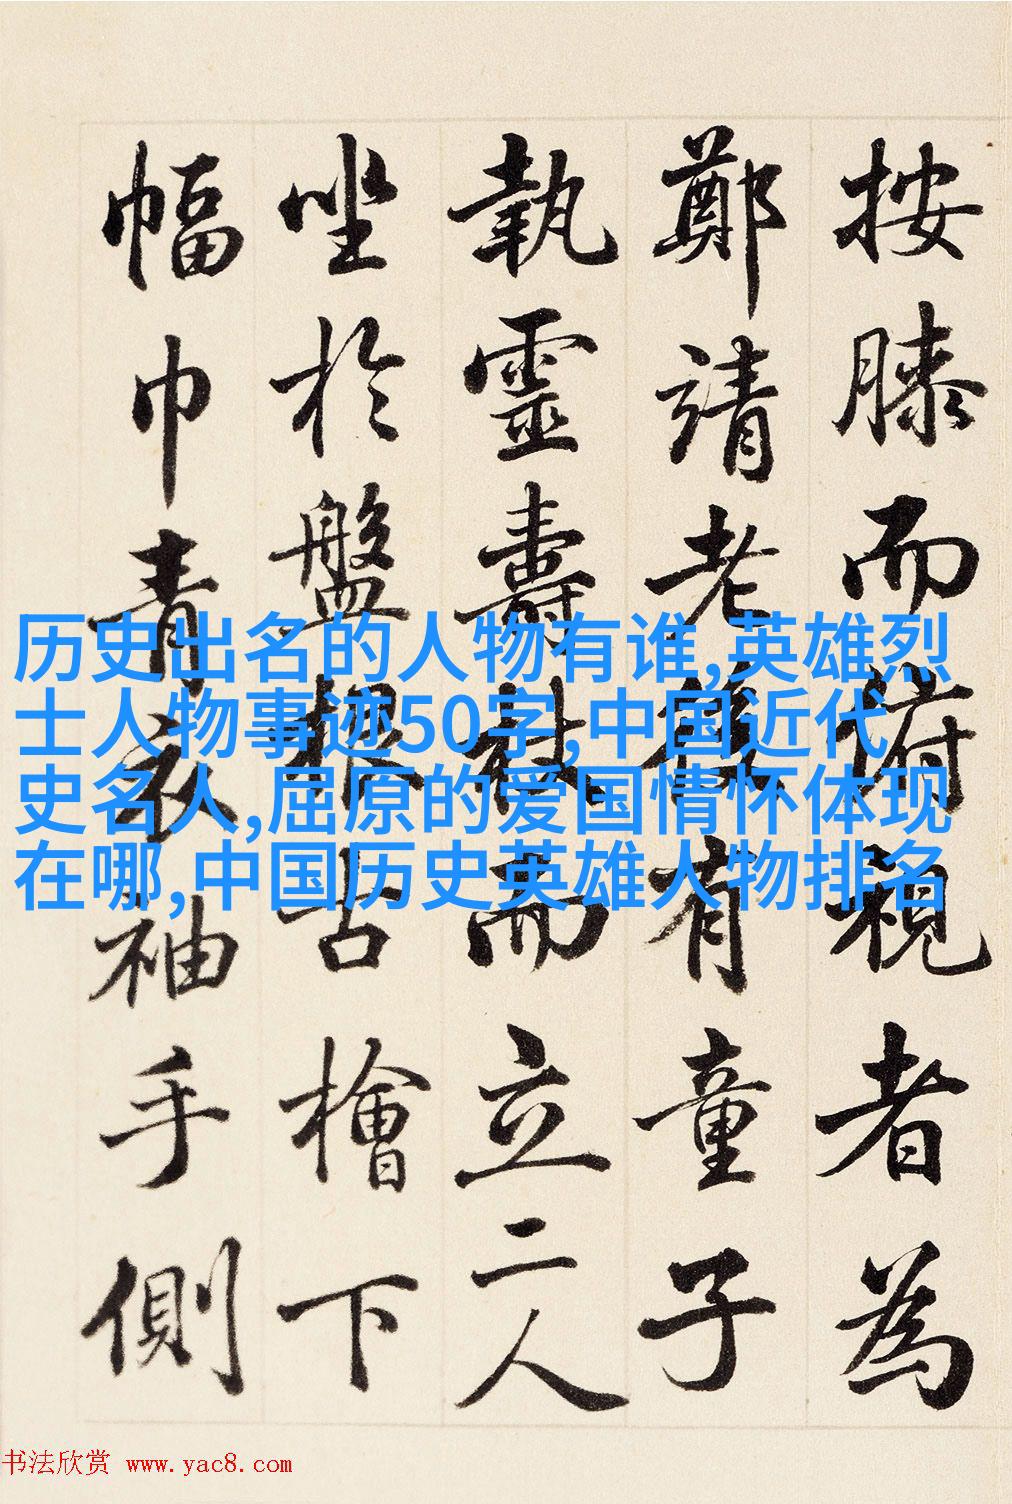 按膝而俯視者為
鄭靖老後有童子
執靈壽杖而立二人
坐於盤根古檜下
幅巾青衣袖手側
历史出名的人物有谁,英雄烈
士人物事迹50字,中国近代
史名人,屈原的爱国情怀体现
在哪,中国历史英雄人物排名
书法欣赏 www.yac8.com